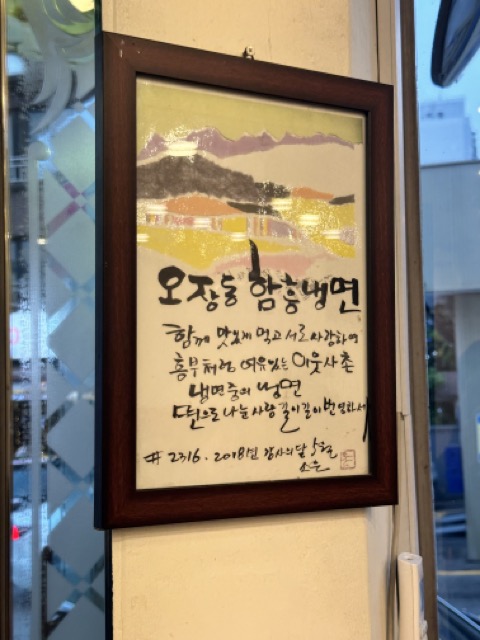 오장동 함흥냉면
함께 맛있게 먹고 서로 사랑하며
흥부처럼 여유있는 이웃사촌
냉면중의 냉면
덕으로 나눈 사랑 길이길이 번영하세
# 2316. 2018년 감사의 달